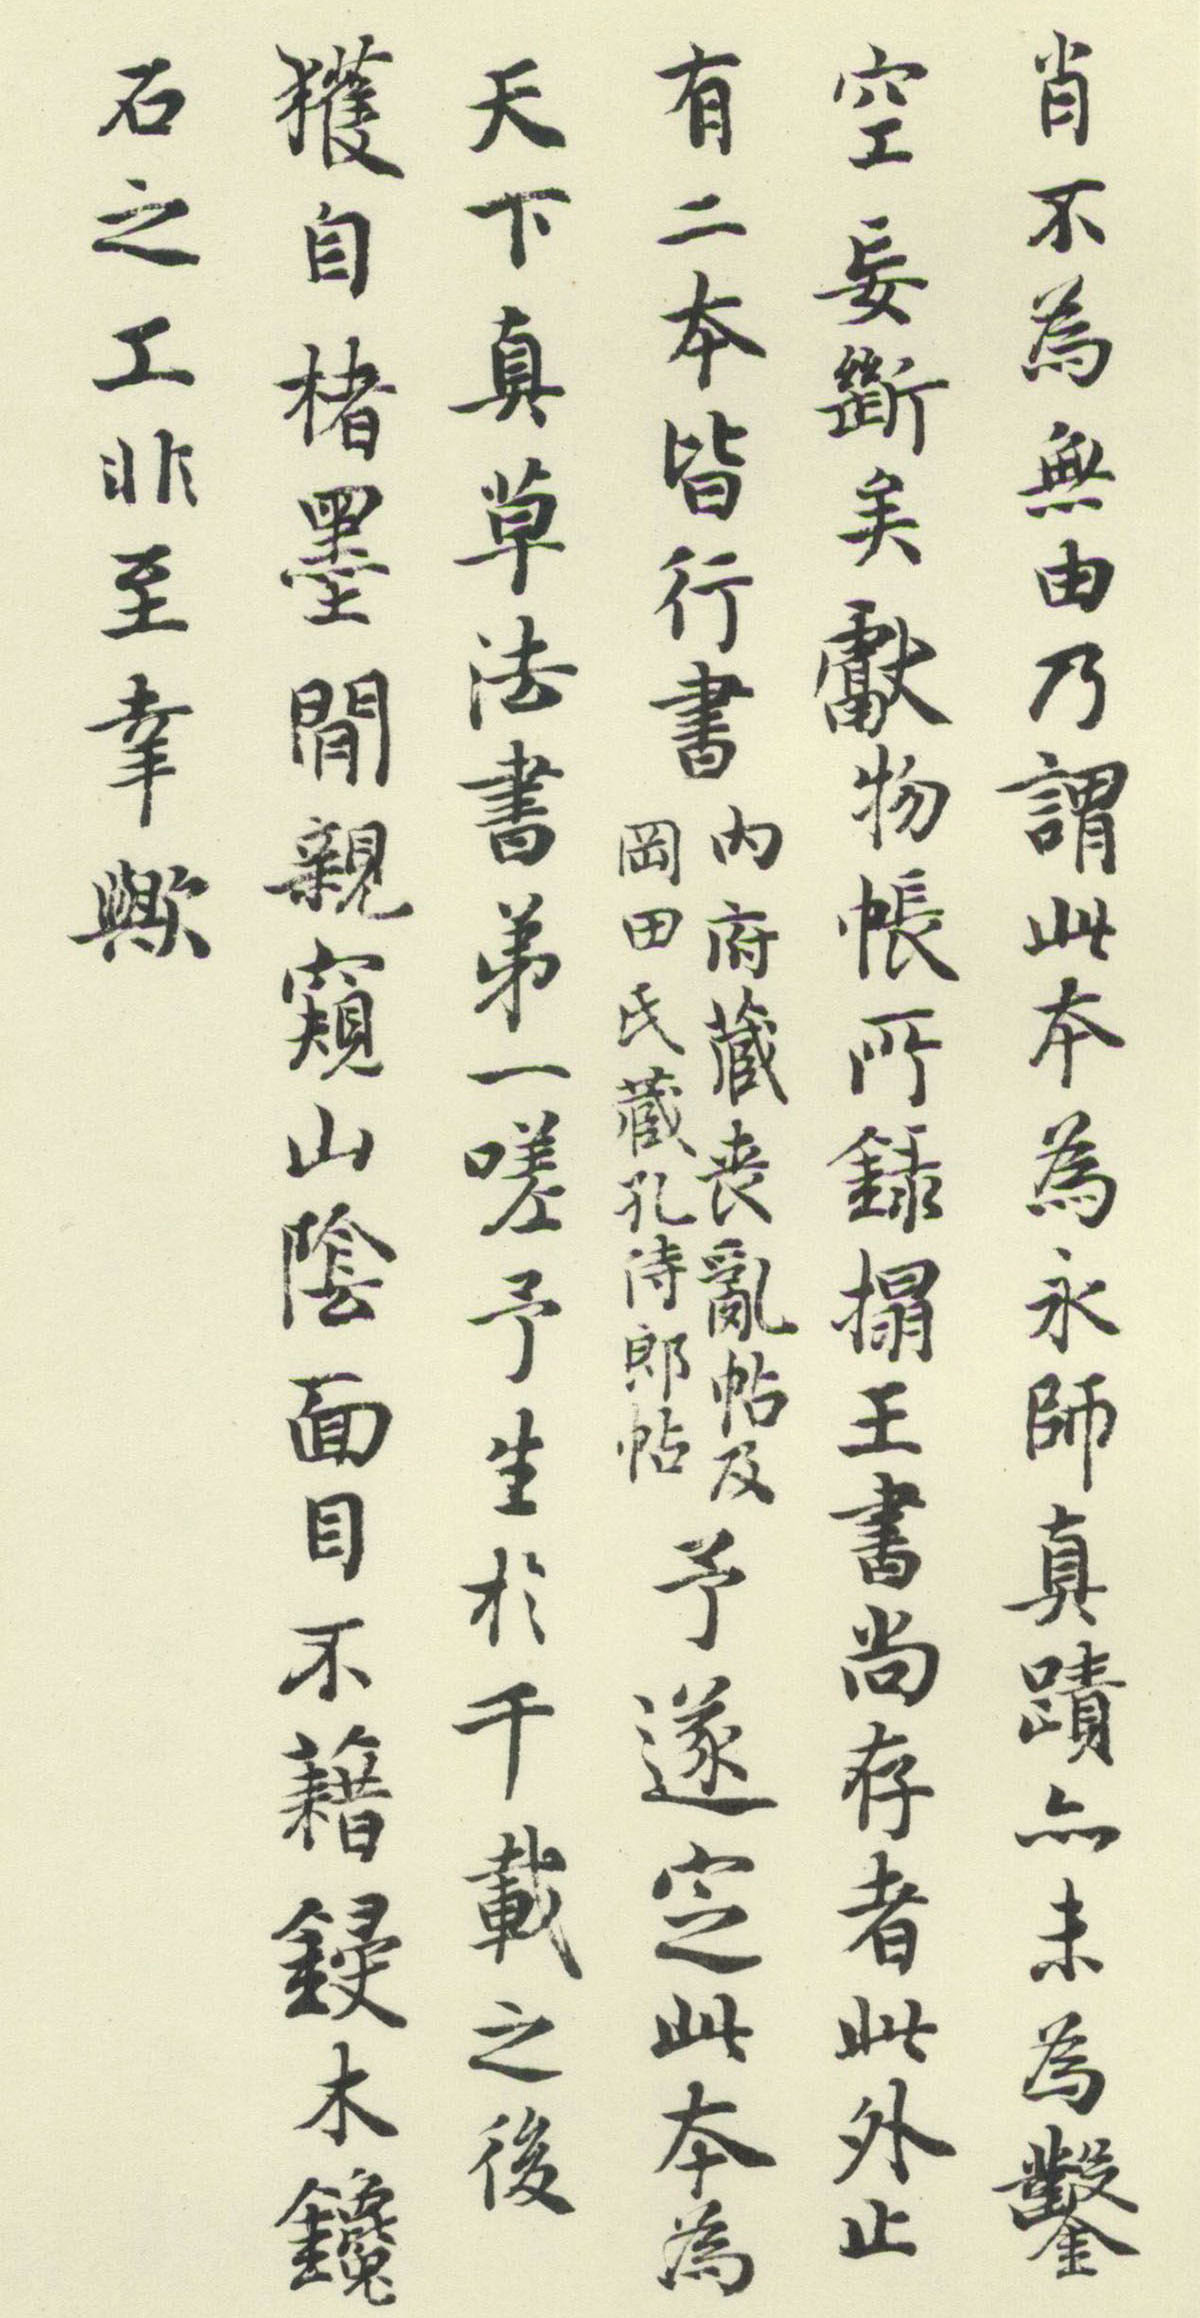 肖不為無由乃謂此本為永師真蹟亦未為鑿
空妄斷矣獻物帳所録搨王書尚存者此外止
有二本皆行書
内府藏喪亂帖及
岡田氏藏孔侍郎帖
予遂定此本為
天下真草法書弟一嗟予生於千載之後
獲自楮墨間親窺山陰面目不藉鋟木鑱
石之工非至幸歟